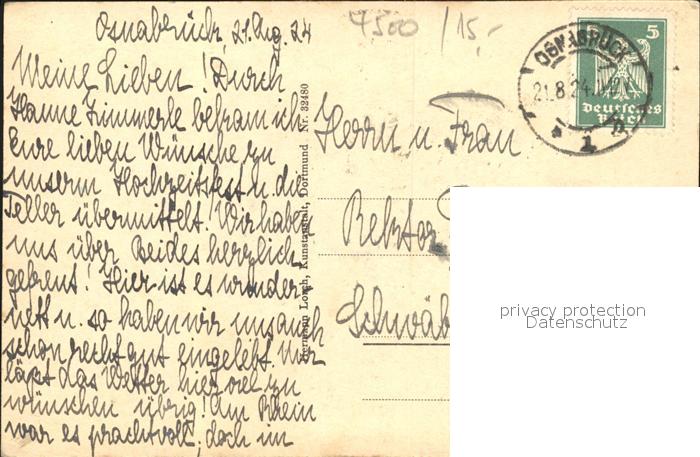 Osnabrück, 21. Aug. 24
7500 /15,-
Meine Lieben! Durch
Hanne Zimmerle bekam ich
Eure lieben Wünsche zu
unserm Hochzeitsfest u. die
Teller übermittelt. Wir haben
uns über Beides herzlich
gefreut! Hier ist es wunder-
nett u. so haben wir uns auch
schon recht gut eingelebt. Nur
läßt das Wetter hier viel zu
wünschen übrig! Am Rhein
war es prachtvoll, doch im
Hermann Lorch, Kunstanstalt, Dortmund Nr. 32480
5 5
Deutsches
Reich
OSNABRÜCK
21.8.24
* 1 n
Herrn u. Frau
Rektor
Schwäb
privacy protection
Datenschutz